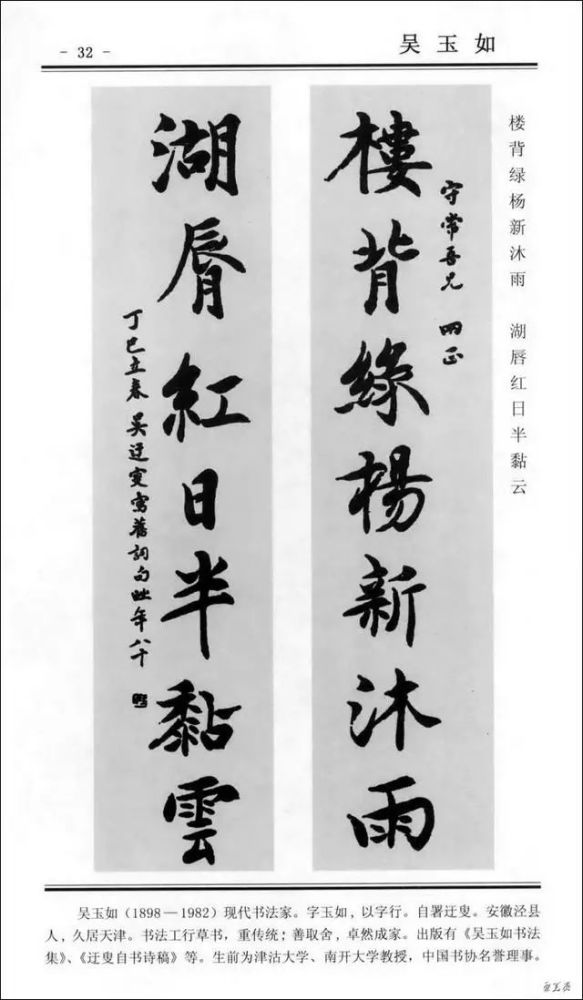 - 32 -
吴玉如
楼背绿杨新沐雨 湖唇红日半黏云
守常吾兄 正
樓背綠楊新沐雨
湖脣紅日半黏雲
丁巳立春 吴迂叟寫舊詞句時年八十
吴玉如（1898—1982）现代书法家。字玉如，以字行。自署迂叟。安徽泾县
人，久居天津。书法工行草书，重传统；善取舍，卓然成家。出版有《吴玉如书法
集》、《迂叟自书诗稿》等。生前为津沽大学、南开大学教授，中国书协名誉理事。